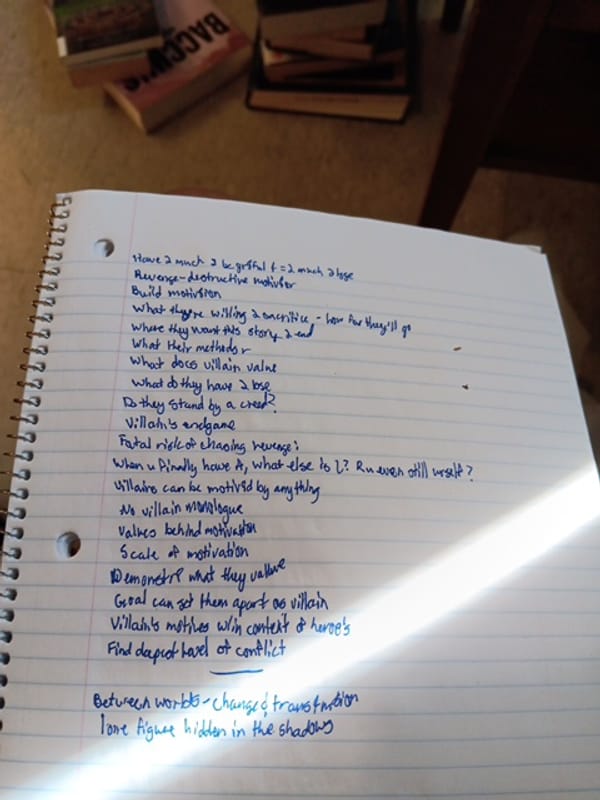 BACCHUS
Have 2 much 2 be grtful f = 2 much 2 lose
Revenge-destructive motivator
Build motivation
What they're willing 2 sacrifice - how far they'll go
Where they want this story 2 end
What their methods r
What does villain value
What do they have 2 lose
Do they stand by a creed?
Villain's endgame
Fatal risk of chasing revenge:
When u finally have it, what else is ? R u even still urself?
Villains can be motivd by anything
No villain monologue
Values behind motivation
Scale of motivation
Demonstr8 what they value
Goal can set them apart as villain
Villain's motives w/in context of hero's
Find deepest level of conflict
Between worlds - change & transfrmtion
lone figure hidden in the shadows